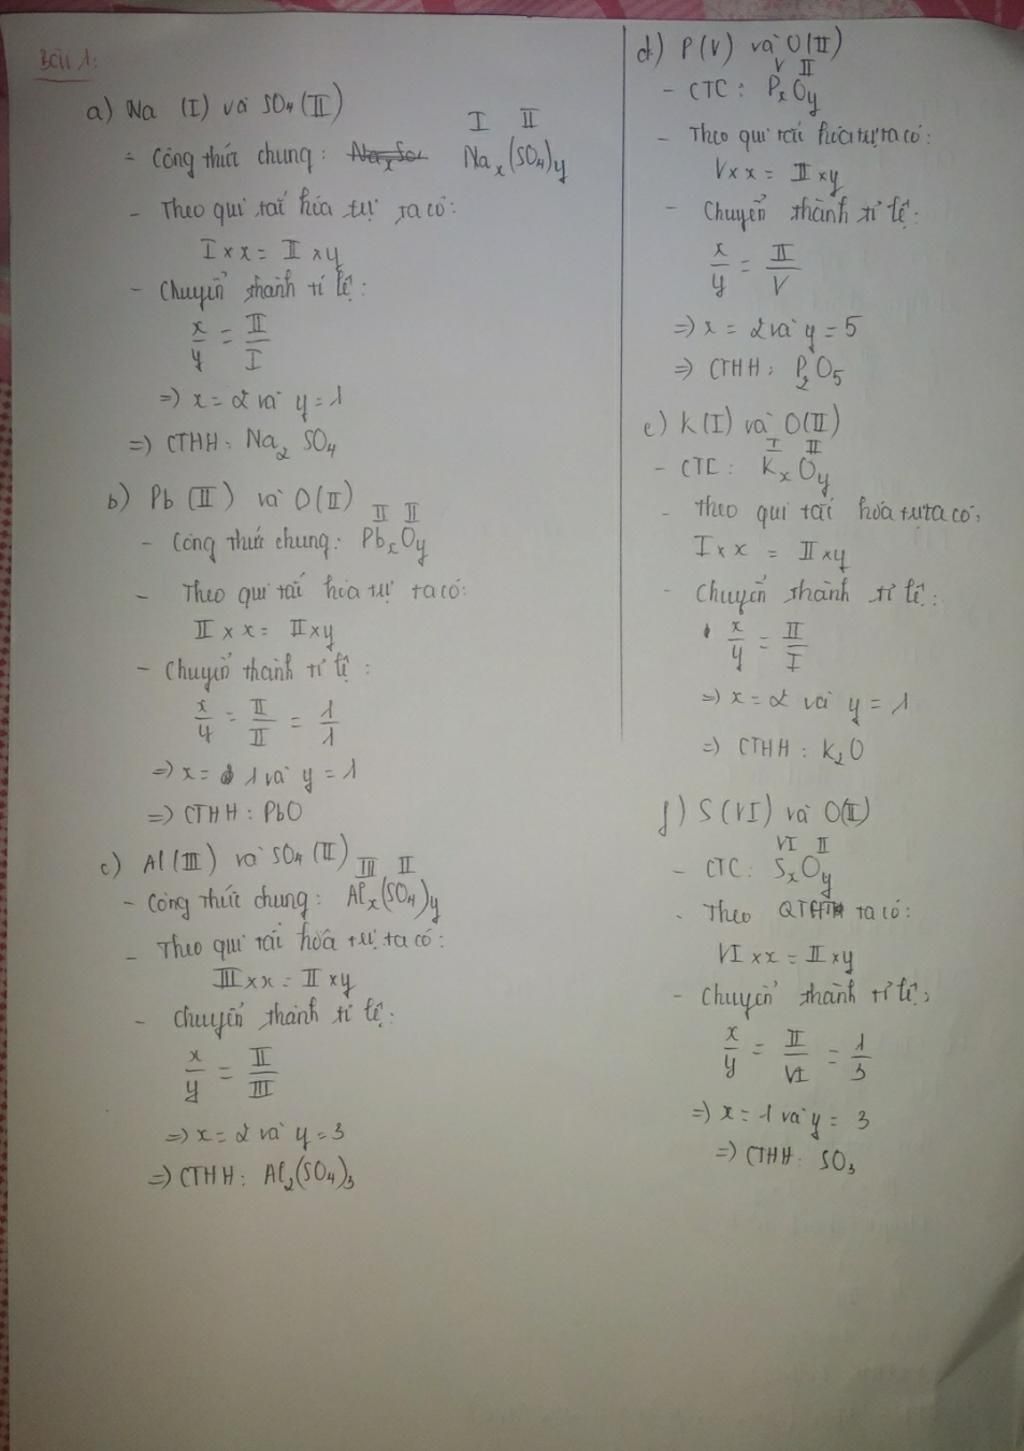 Bài 1:
a) Na (I) và SO4 (II)
I II
- Công thức chung: Nax(SO4)y
- Theo qui tắc hóa tự ta có:
I x x = II x y
- Chuyển thành tỉ lệ:
x/y = II/I
=> x = 2 và y = 1
=> CTHH: Na2 SO4
b) Pb (II) và O (II)
II II
- Công thức chung: PbxOy
- Theo qui tắc hóa tự ta có:
II x x = II x y
- Chuyển thành tỉ lệ:
x/y = II/II = 1/1
=> x = 1 và y = 1
=> CTHH: PbO
c) Al (III) và SO4 (II)
III II
- Công thức chung: Alx(SO4)y
- Theo qui tắc hóa tự ta có:
III x x = II x y
- Chuyển thành tỉ lệ:
x/y = II/III
=> x = 2 và y = 3
=> CTHH: Al2(SO4)3
d) P (V) và O (II)
V II
- CTC: PxOy
- Theo qui tắc hóa tự ta có:
V x x = II x y
- Chuyển thành tỉ lệ:
x/y = II/V
=> x = 2 và y = 5
=> CTHH: P2O5
e) K (I) và O (II)
I II
- CTC: KxOy
- Theo qui tắc hóa tự ta có:
I x x = II x y
- Chuyển thành tỉ lệ:
x/y = II/I
=> x = 2 và y = 1
=> CTHH: K2O
f) S (VI) và O (II)
VI II
- CTC: SxOy
- Theo QTHT ta có:
VI x x = II x y
- Chuyển thành tỉ lệ:
x/y = II/VI = 1/3
=> x = 1 và y = 3
=> CTHH: SO3